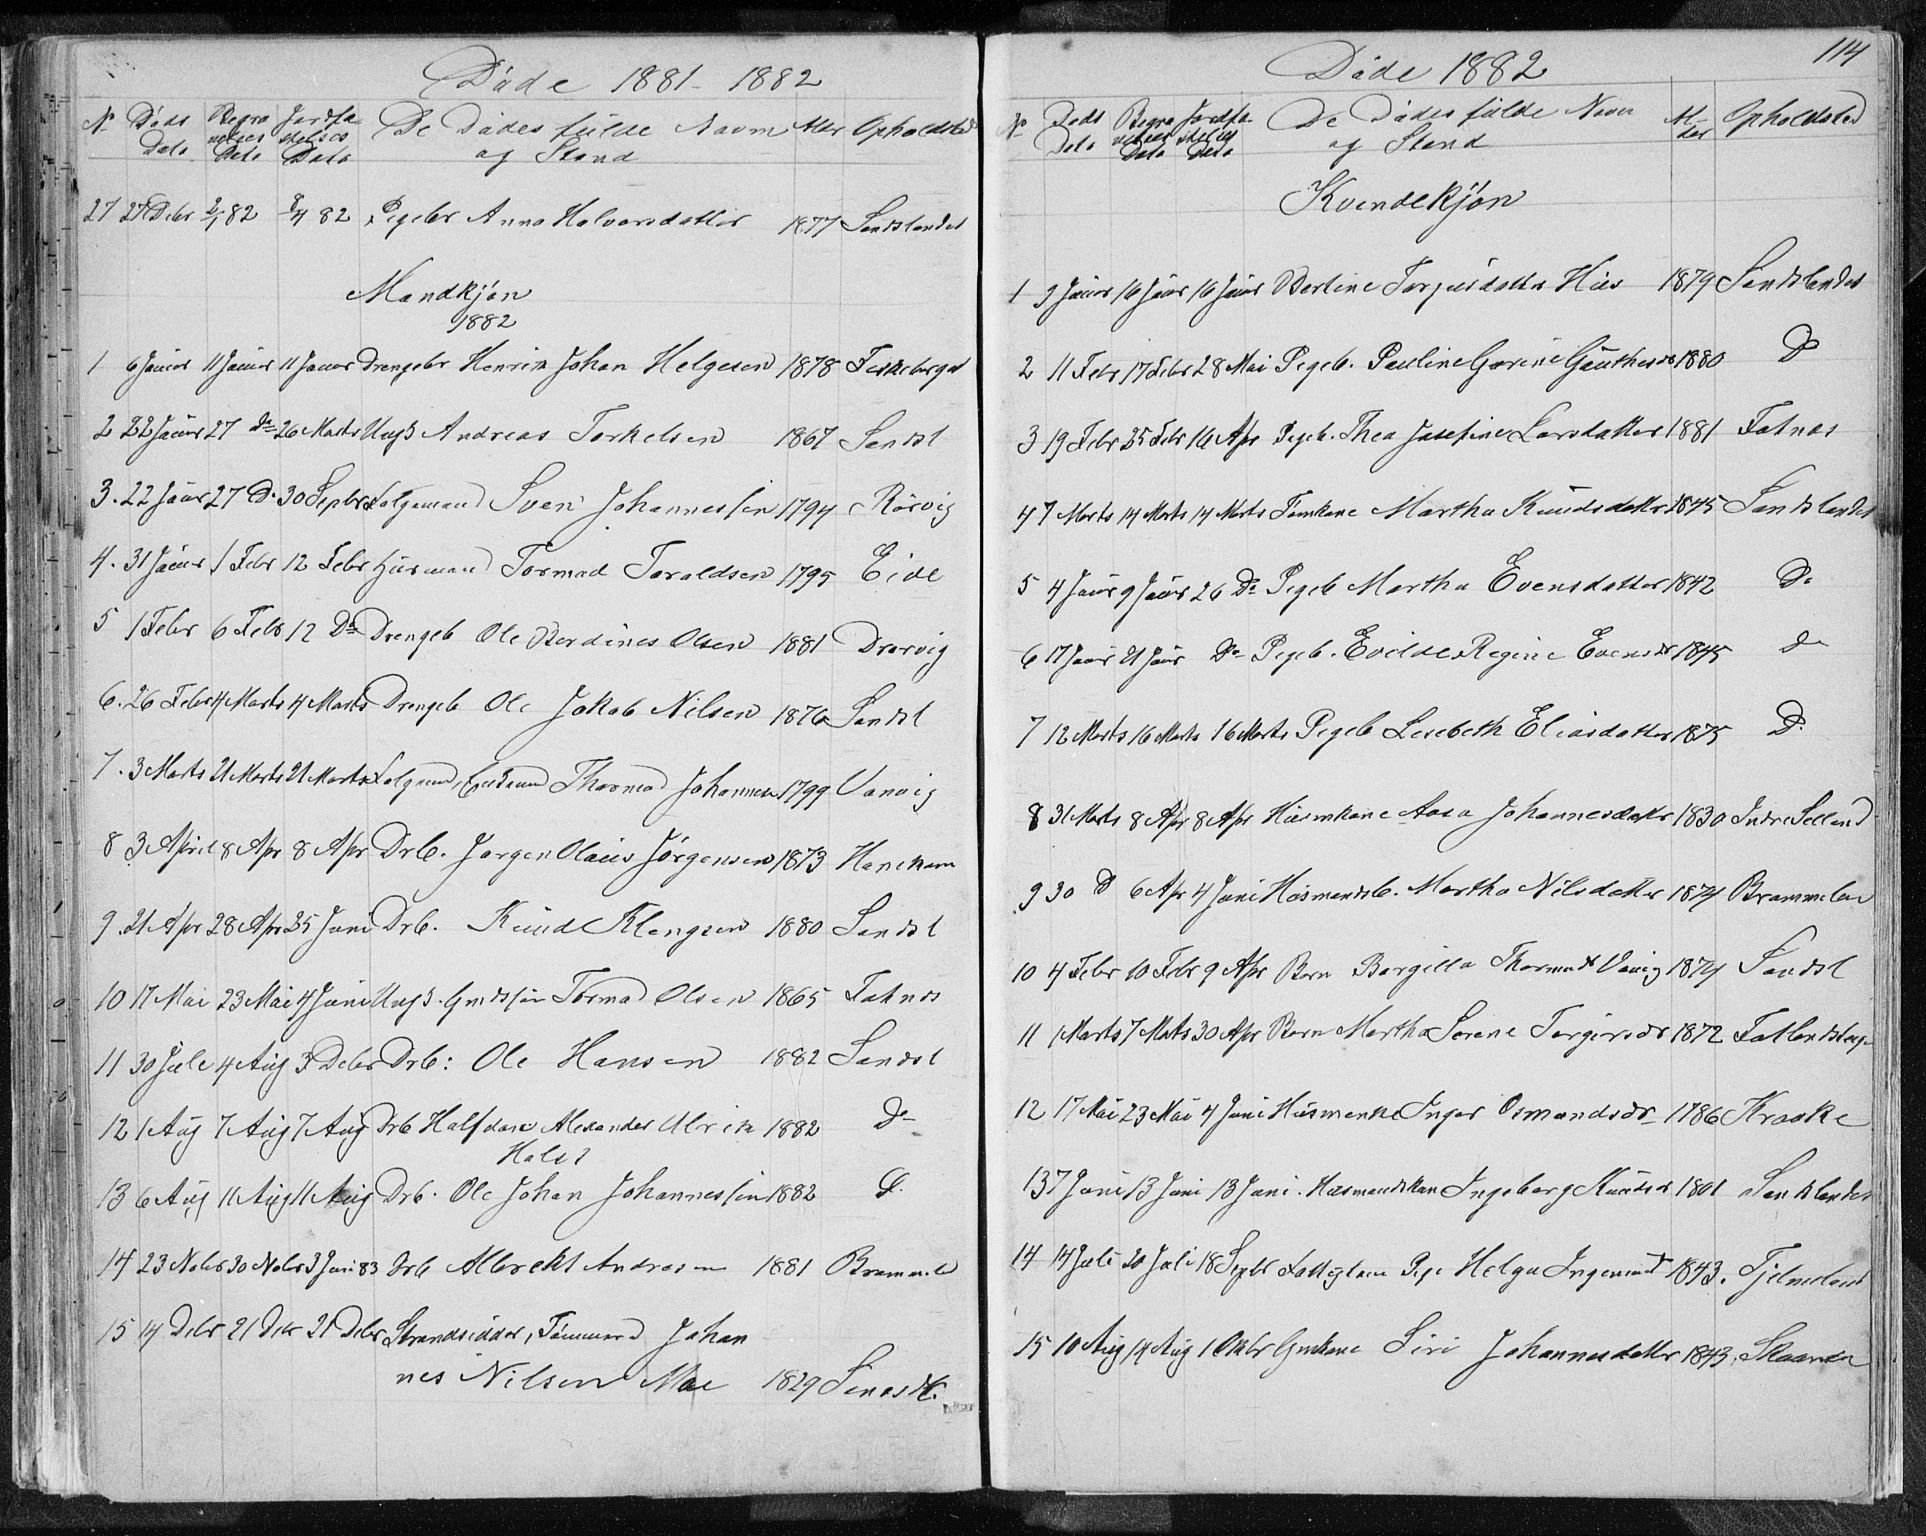 Døde 1881-1882
No Døds Dato Begravelses Dato Jordfæstelses Dato De Dødes fulde Navn og Stand Alder Opholdsted
27 27 Debr 2/1 82 8/4 82 Pigebr Anna Halvorsdatter 1877 Sandslandet
Mandkjøn
1882
1 6 Januar 11 Januar 11 Januar Drengebr Henrik Johan Helgesen 1878
2 22 Januar 27 do 26 Marts Ungk Andreas Torkelsen 1867 Sandsl
3. 22 Januar 27 Do 30 Septbr Folgemand Sven Johannessen 1794 Rørvig
4. 31 Januar 1 Febr 12 Febr Husmand Tormod Toraldsen 1795 Eide
5 1 Febr 6 Febr 12 Do Drengeb Ole Berdines Olsen 1881 Drarvig
6. 26 Febr 4 Marts 4 Marts Drengeb Ole Jakob Nilsen 1876 Sandsl
7. 3 Marts 21 Marts 21 Marts Folgemand, Thormod Johannesen 1799 Vanvig
8 3 April 8 Apr 8 Apr Drb. Jørgen Olaus Jørgensen 1873
9. 21 Apr 28 Apr 25 Juni Drb. Knud Klengsen 1880 Sandsl
10 17 Mai 23 Mai 4 Juni Ungk. Tormod Olsen 1865 Fatnes
11 30 Jule 4 Aug 3 Debr Drb: Ole Hansen 1882 Sandsl
12 1 Aug 7 Aug 7 Aug Drb Halfdan Alexander Ulrik 1882 Do
Halst
13 6 Aug 11 Aug 11 Aug Drb. Ole Johan Johannessen 1882 D.
14 23 Nobr 30 Nobr 3 Juni 83 Drb Albrekt Andrasen 1881 Brammele
15 14 Debr 21 Debr 21 Debr Strandsidder, Tømmermd Johan
nes Nilsen Moe 1829
Døde 1882
114
No Døds Dato Begravelses Dato Jordfæstelses Dato De Dødes fulde Navn og Stand Alder Opholdsted
Kvindekjøn
1 9 Januar 16 Januar 16 Januar Bertine Torgusdatter Hus 1879 Sandslandet
2 11 Febr 17 Febr 28 Mai Pigeb. Pauline Gurine Gauthesdr 1880 Do
3 19 Febr 25 Febr 16 Apr Pigeb. Thea Josefine Larsdatter 1881 Fatnes
4 7 Marts 14 Marts 14 Marts Martha Knudsdattr 1845 Sandslandet
5 4 Januar 9 Januar 26 Do Pigeb Martha Evensdatter 1842 Do
6 17 Januar 21 Januar Do Pigeb. Evilde Regine Evensdr 1845 Do
7 12 Marts 16 Marts 16 Marts Pigeb Lisebeth Eliasdatter 1875 D.
8 31 Marts 8 Apr 8 Apr Husmkone Aasa Johannesdattr 1830 Indre Selland
9 30 D 6 Apr 4 Juni Husmandsb. Martha Nilsdatter 1874 Brammelan
10 4 Febr 10 Febr 9 Apr Barn Bargilla Thormodsd Vanvig 1874 Sandsl
11 1 Marts 7 Marts 30 Apr Barn Martha Serene Torgersdr 1872
12 17 Mai 23 Mai 4 Juni Husmenke Inger Osmundsdr 1786 Kraake
13 7 Juni 13 Juni 13 Juni. Husmandskon Ingeborg Knutsd 1801 Sandslandet
14 14 Juli 20 Juli 18 Septbr Pige Helga Ingemundsd 1843. Tjelmeland
15 10 Aug 14 Aug 1 Oktbr Gmkone Siri Johannesdattr 1843,